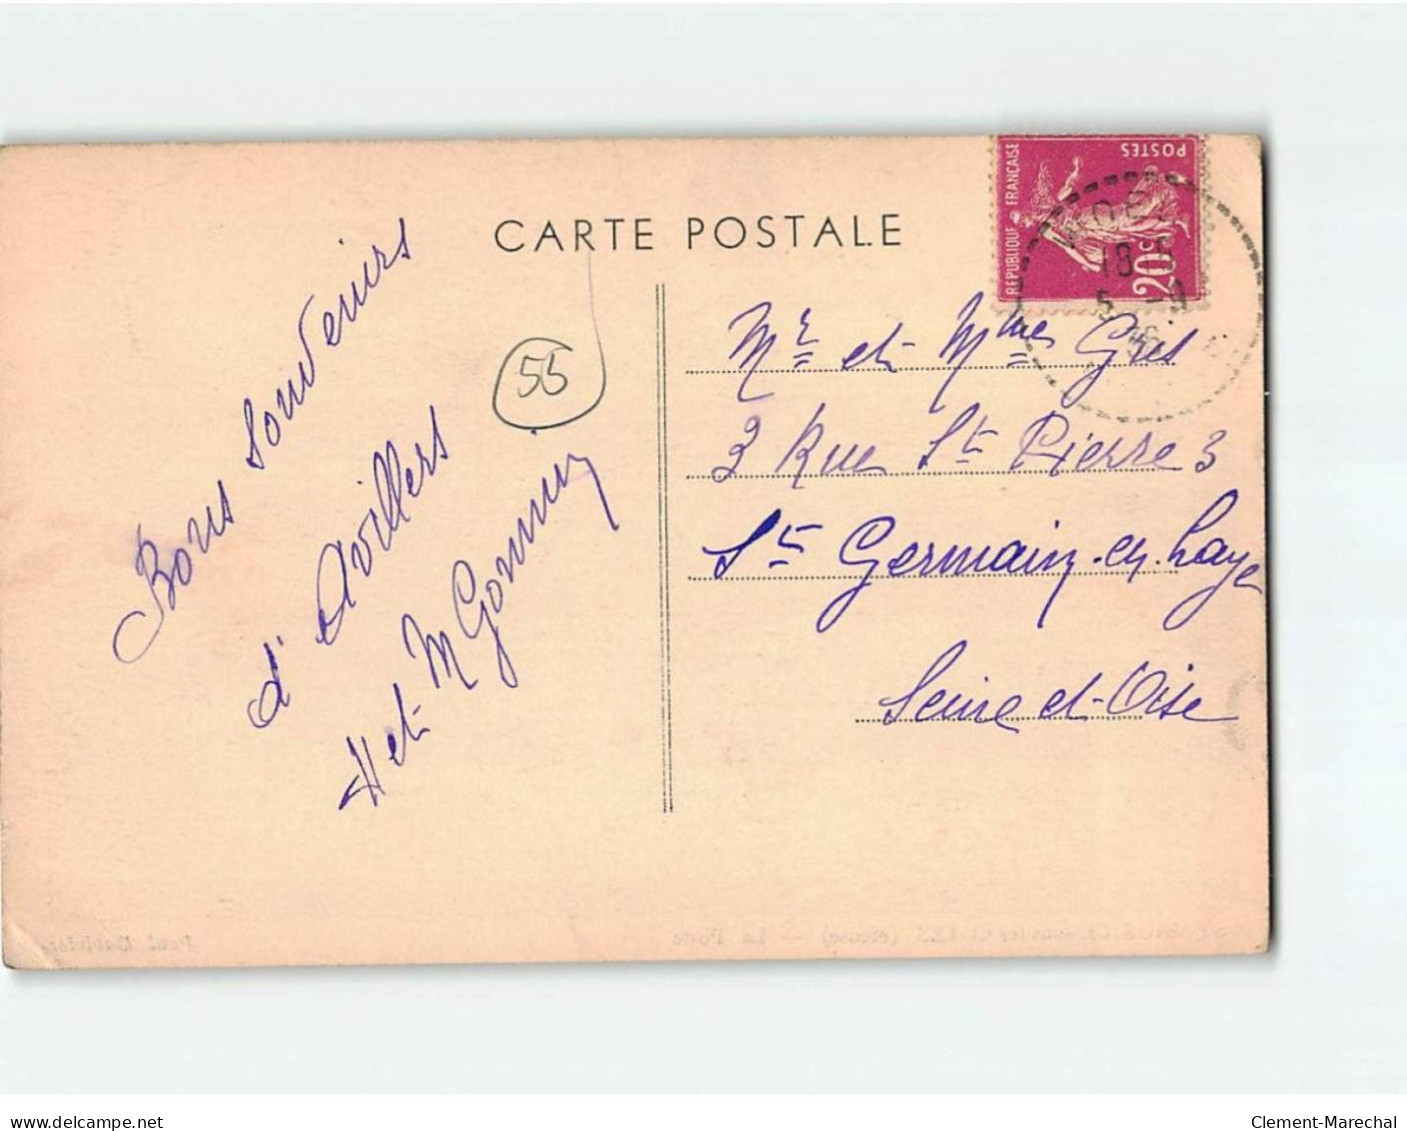 CARTE POSTALE
REPUBLIQUE FRANÇAISE
POSTES
20c
18
5 -9
Bons souvenirs
d'Avillers
H et M Gonnin
55
Mr et Mme Gris
3 Rue St Pierre 3
St Germain-en-Laye
Seine et-Oise
(Meuse) — La Poste
delcampe.net
Clement-Marechal